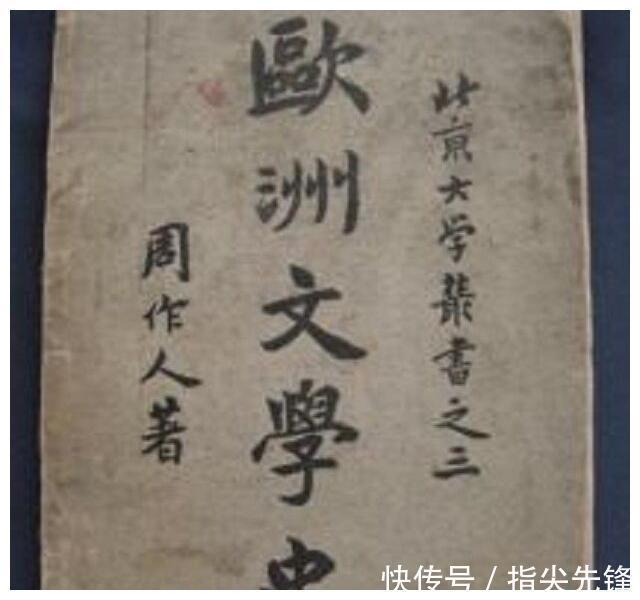 北京大学叢書之三
歐洲文學史
周作人著
快传号 / 指尖先锋